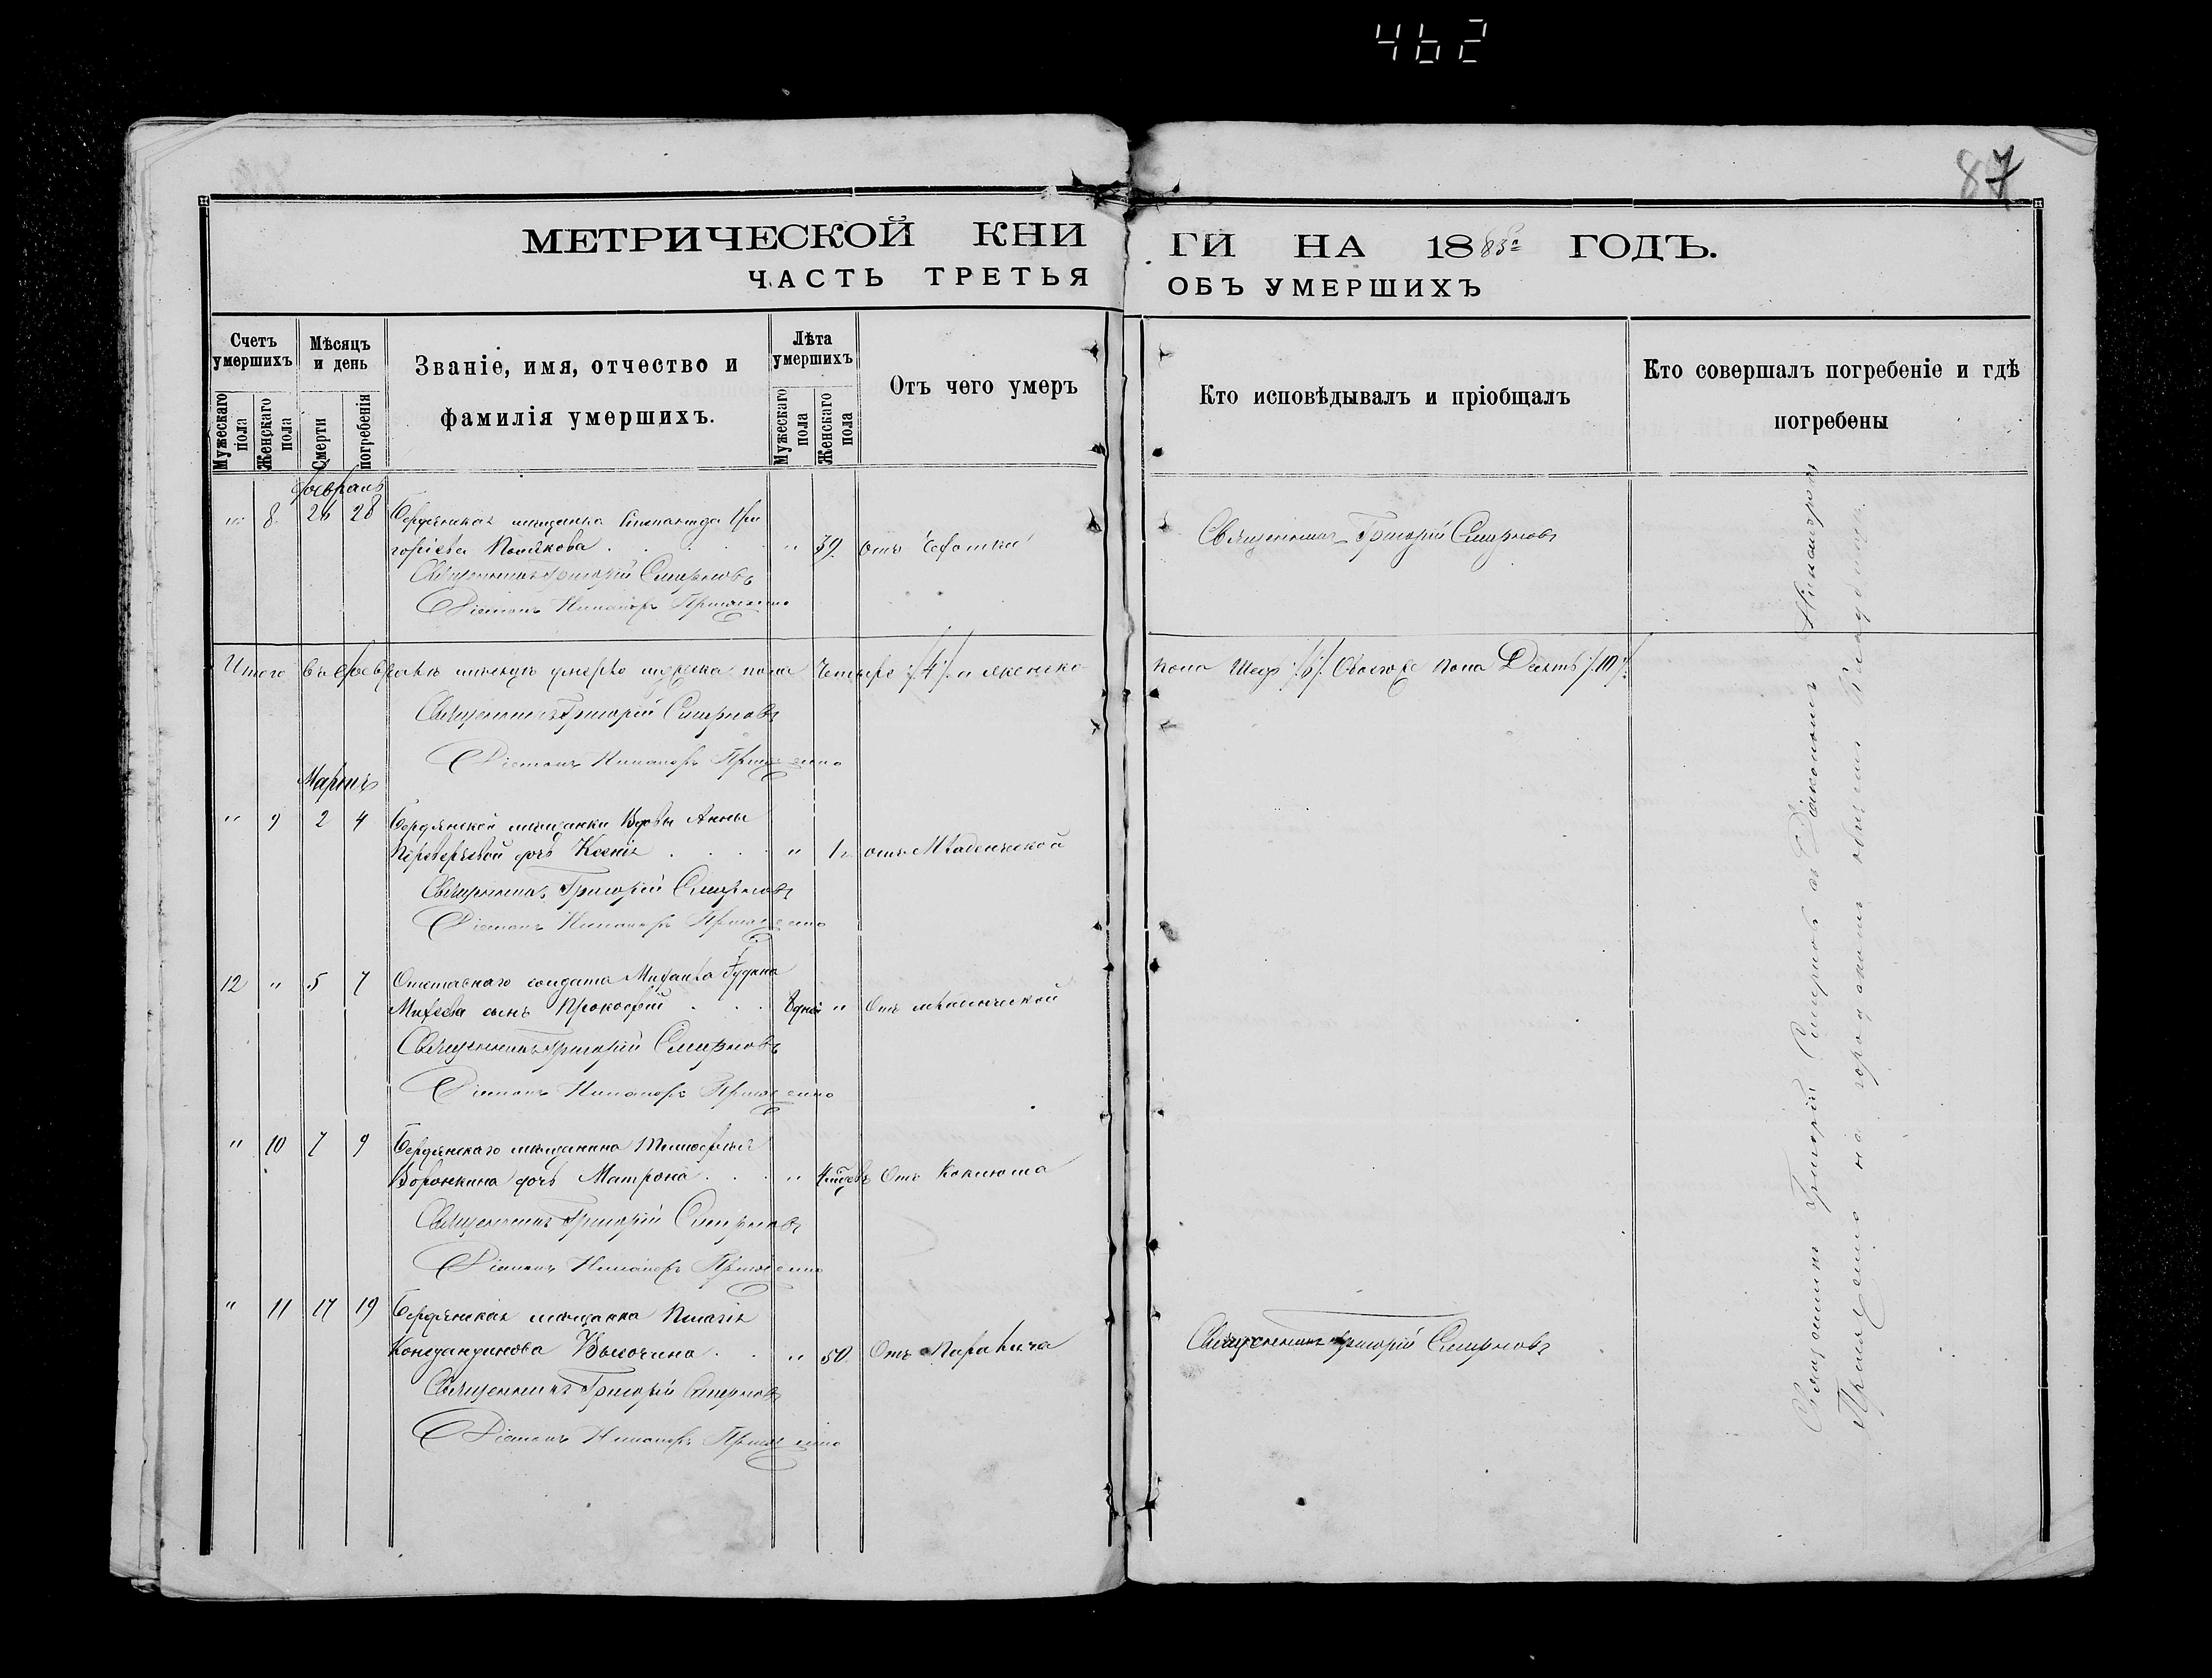 462
87
МЕТРИЧЕСКОЙ КНИ ГИ НА 1883 ГОДЪ.
ЧАСТЬ ТРЕТЬЯ ОБЪ УМЕРШИХЪ
Счетъ умершихъ
Мужескаго пола
Женскаго пола
Мѣсяцъ и день
Смерти
погребенія
Званіе, имя, отчество и
фамилія умершихъ.
Лѣта умершихъ
Мужескаго пола
Женскаго пола
Отъ чего умеръ
Кто исповѣдывалъ и пріобщалъ
Кто совершалъ погребеніе и гдѣ
погребены
Февраль
" 8 26 28 Бердянская мѣщанка Гри
горіева Полякова " 39 отъ Чахотки Священникъ Григорій Смирновъ
Священникъ Григорій Смирновъ
Діаконъ Никаноръ
Итого въ Февралѣ мѣсяцѣ умерло мужеска пола Четыре /4/ и женско пола Шесть /6/ Обоего пола Десять /10/
Священникъ Григорій Смирновъ
Діаконъ Никаноръ
Мартъ
" 9 2 4 Бердянской мѣщанки Вдовы Анны
дочь Ксенія " 1 отъ Младенческой
Священникъ Григорій Смирновъ
Діаконъ Никаноръ
12 " 5 7 Отставнаго солдата Михаила
Михеева сынъ Прокофій 8 дней " Отъ младенческой
Священникъ Григорій Смирновъ
Діаконъ Никаноръ
" 10 7 9 Бердянскаго мѣщанина Тимофея
Воронкина дочь Матрона " 4 Отъ Коклюша
Священникъ Григорій Смирновъ
Діаконъ Никаноръ
" 11 17 19 Бердянская мѣщанка Пелагія
Высочина " 50 Отъ Паралича Священникъ Григорій Смирновъ
Священникъ Григорій Смирновъ
Діаконъ Никаноръ
Священникъ Григорій Смирновъ съ Діакономъ Никаноромъ
на городскомъ общемъ Кладбищѣ.